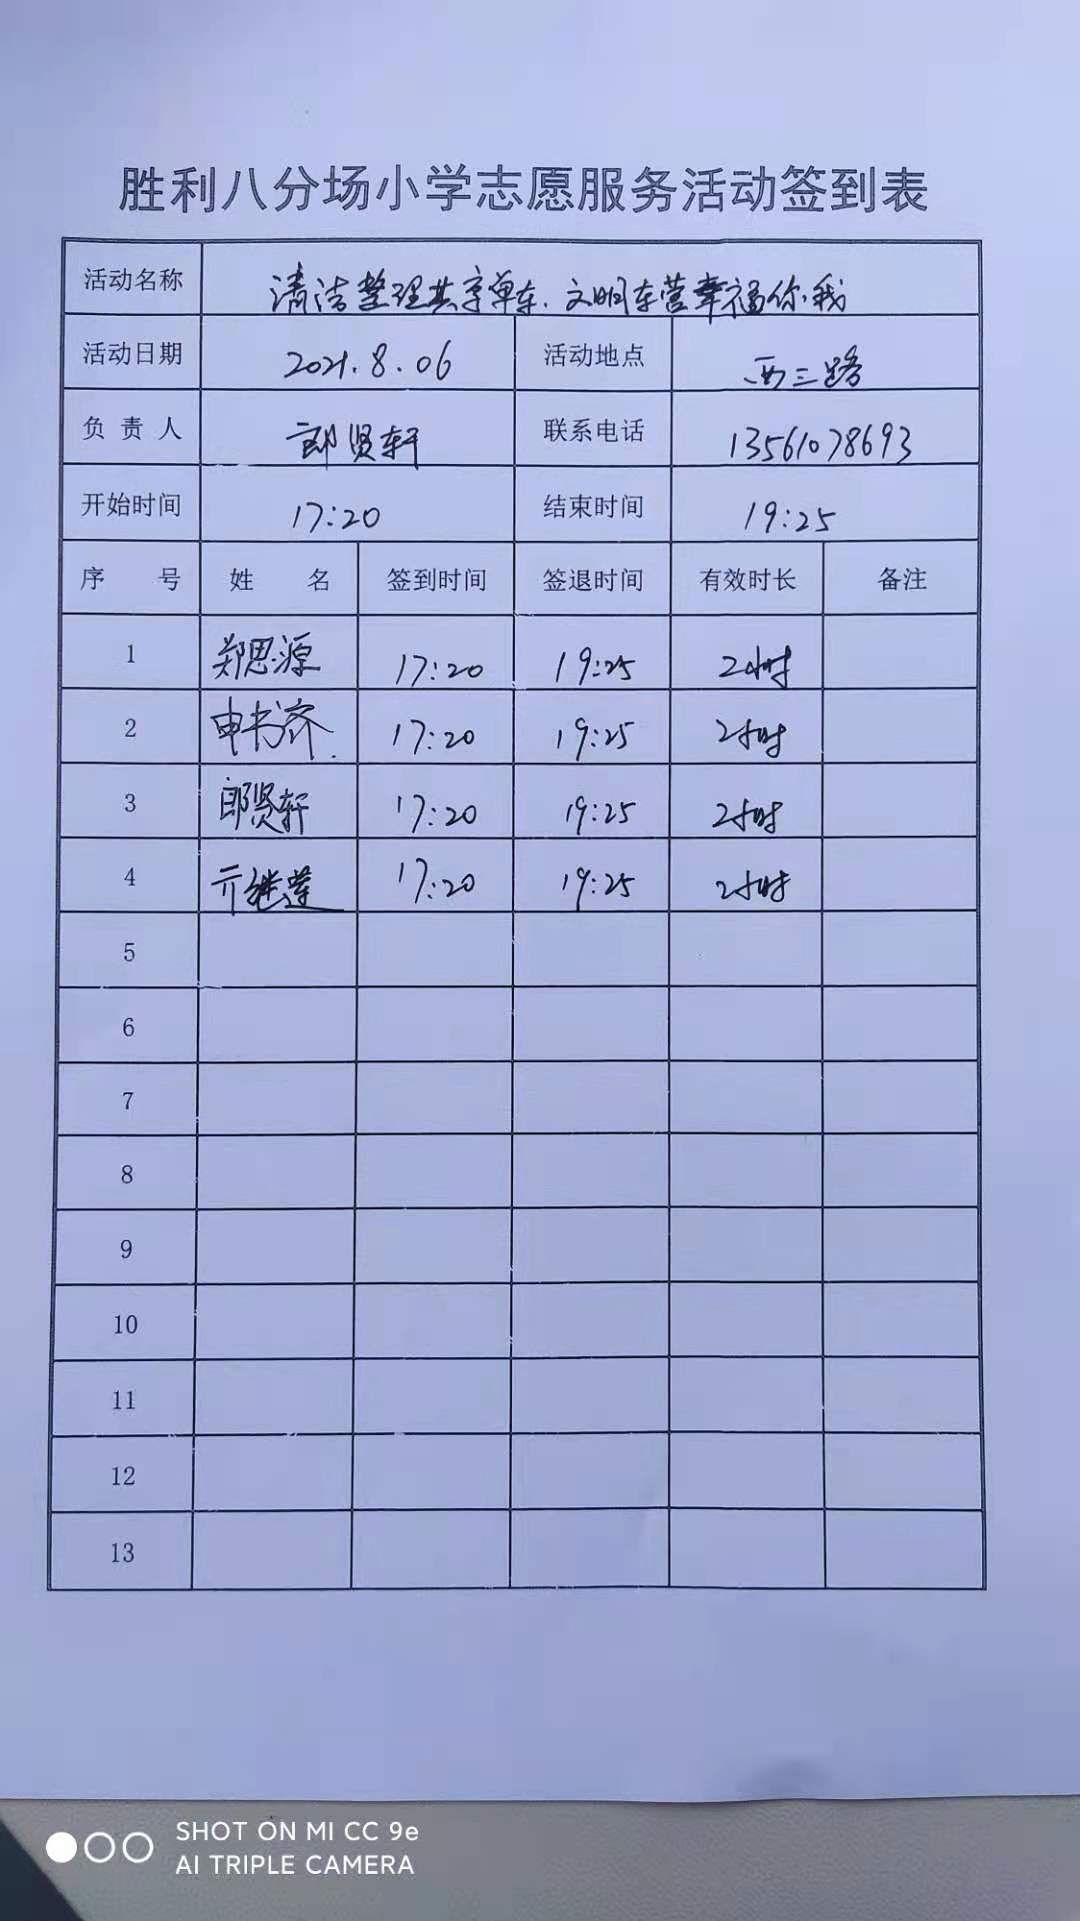 胜利八分场小学志愿服务活动签到表
活动名称 清洁整理共享单车.文明东营幸福你我
活动日期 2021.8.06 活动地点 西三路
负责人 郎贤轩 联系电话 13561078693
开始时间 17:20 结束时间 19:25
序号 姓名 签到时间 签退时间 有效时长 备注
1 郑思源 17:20 19:25 2小时
2 申书齐 17:20 19:25 2小时
3 郎贤轩 17:20 19:25 2小时
4 亓继莲 17:20 19:25 2小时
5
6
7
8
9
10
11
12
13
SHOT ON MI CC 9e
AI TRIPLE CAMERA